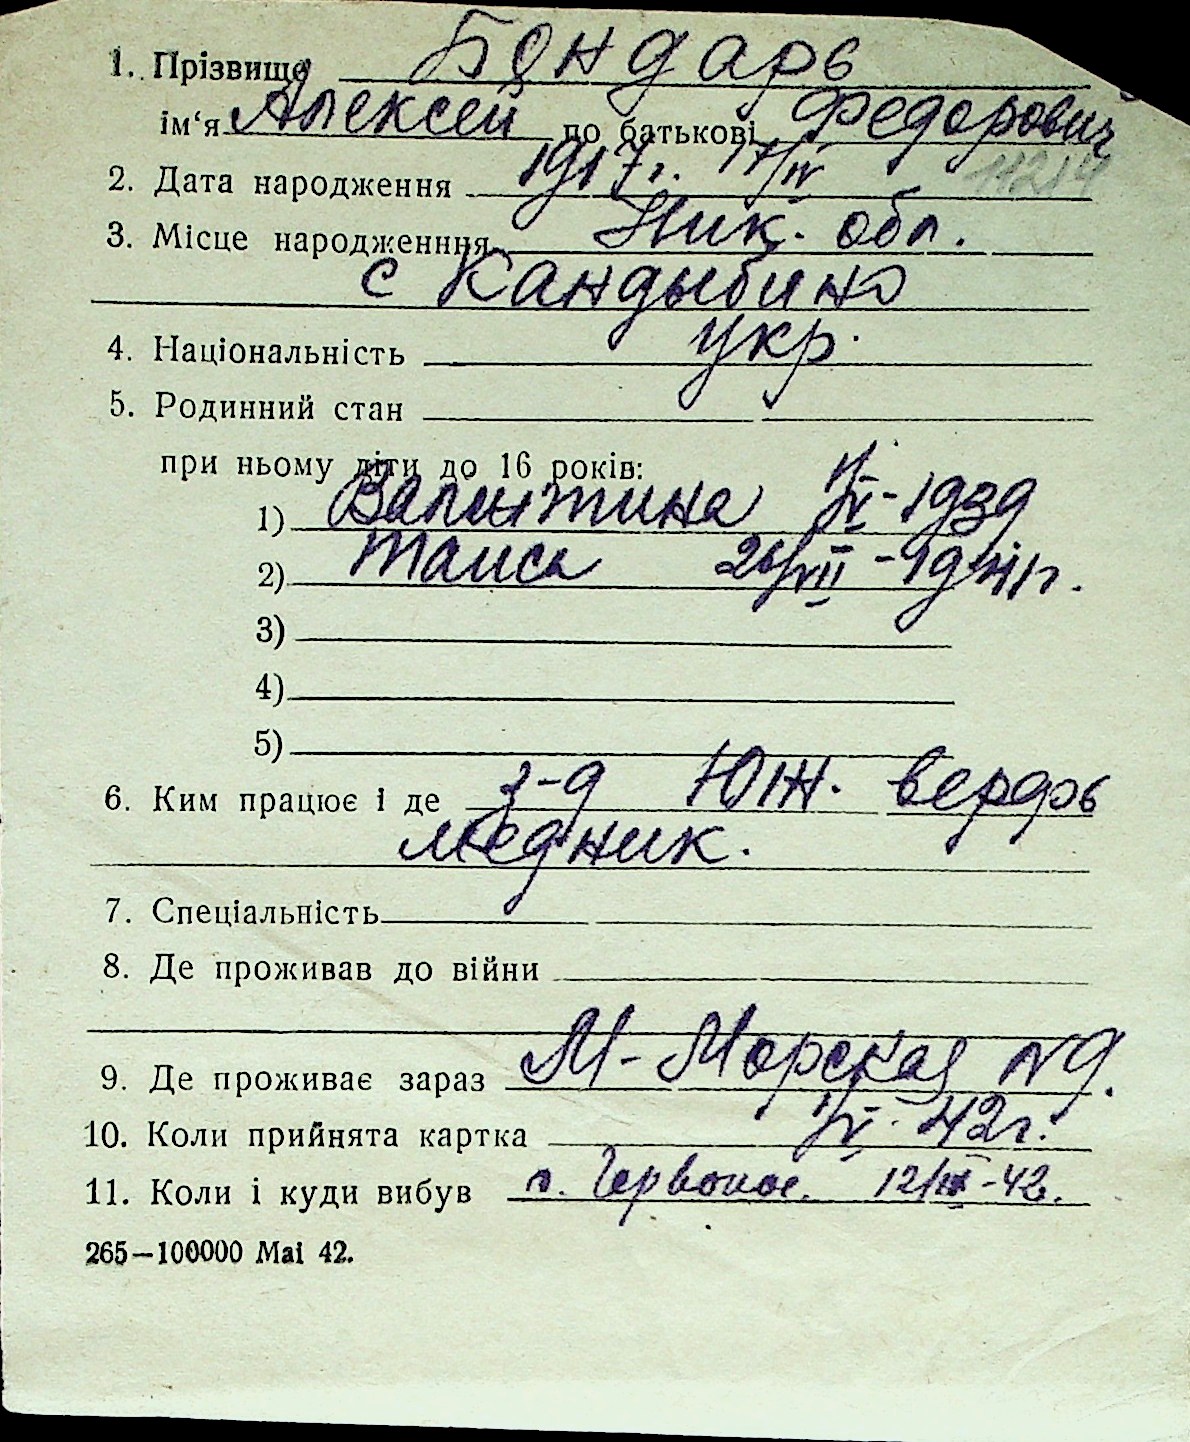 1. Прізвище Бондарь
ім‘я Алексей по батькові Федорович
2. Дата народження 1917г. 17/IV 11214
3. Місце народженння Ник. обл.
с Кандыбино
4. Національність укр.
5. Родинний стан
при ньому діти до 16 років:
1) Валентина 1/IV-1939
2) Таиса 26/VII-1941г.
3)
4)
5)
6. Ким працює і де з-д Юж. верфь
медник.
7. Спеціальність
8. Де проживав до війни
9. Де проживає зараз М-Морская N 9.
10. Коли прийнята картка 42г.
11. Коли і куди вибув 12/IX-42.
265—100000 Mai 42.